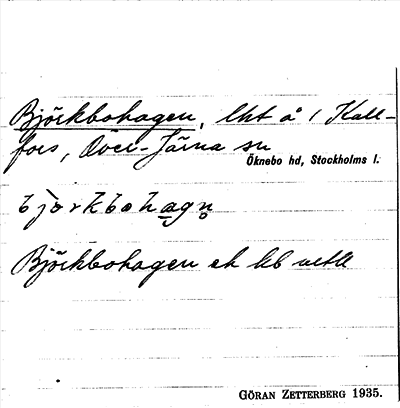 Björkbohagen, lht å 1 Kall-
fors, Över-Järna sn
Öknebo hd, Stockholms l.
bjorkbohagn
Björkbohagen
GÖRAN ZETTERBERG 1935.